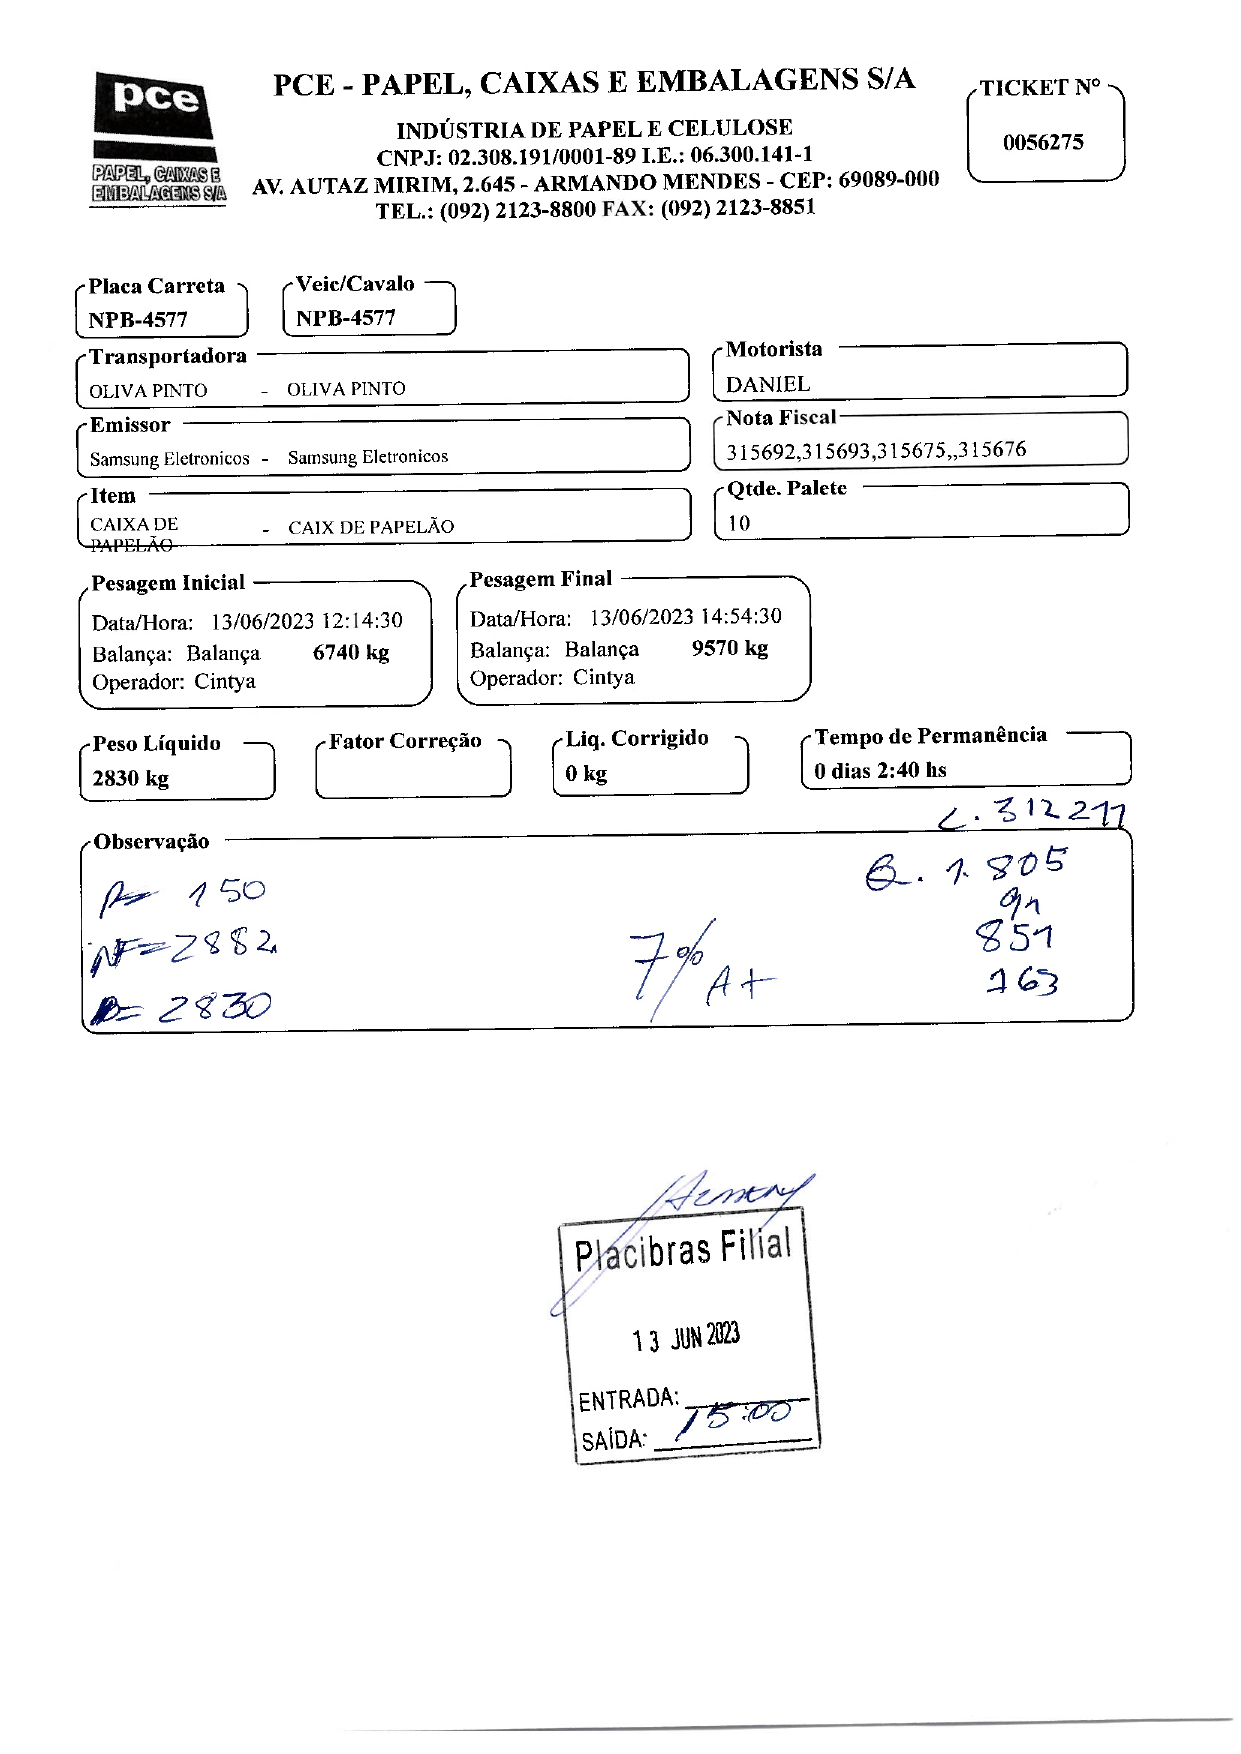 pce
PAPEL, CAIXAS E
EMBALAGENS S/A
PCE - PAPEL, CAIXAS E EMBALAGENS S/A
INDÚSTRIA DE PAPEL E CELULOSE
CNPJ: 02.308.191/0001-89 I.E.: 06.300.141-1
AV. AUTAZ MIRIM, 2.645 - ARMANDO MENDES - CEP: 69089-000
TEL.: (092) 2123-8800 FAX: (092) 2123-8851
TICKET Nº
0056275
Placa Carreta
NPB-4577
Veic/Cavalo
NPB-4577
Transportadora
OLIVA PINTO - OLIVA PINTO
Motorista
DANIEL
Emissor
Samsung Eletronicos - Samsung Eletronicos
Nota Fiscal
315692,315693,315675,,315676
Item
CAIXA DE - CAIX DE PAPELÃO
PAPELÃO
Qtde. Palete
10
Pesagem Inicial
Data/Hora: 13/06/2023 12:14:30
Balança: Balança 6740 kg
Operador: Cintya
Pesagem Final
Data/Hora: 13/06/2023 14:54:30
Balança: Balança 9570 kg
Operador: Cintya
Peso Líquido
2830 kg
Fator Correção
Liq. Corrigido
0 kg
Tempo de Permanência
0 dias 2:40 hs
Observação
150
NF=2882
= 2830
7% A+
1.805
851
163
Placibras Filial
13 JUN 2023
ENTRADA:
15:00
SAÍDA: